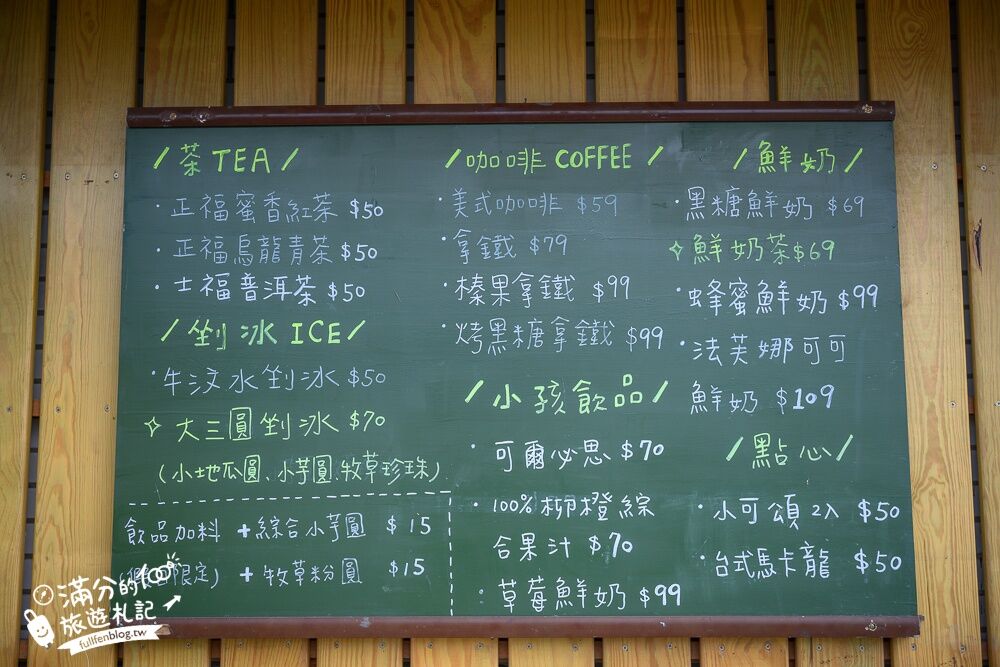 / 茶 TEA /
· 正福蜜香紅茶 $50
· 正福烏龍青茶 $50
· 士福普洱茶 $50
/ 剉冰 ICE /
· 牛汶水剉冰 $50
✧ 大三圓剉冰 $70
(小地瓜圓、小芋圓、牧草珍珠)
飲品加料 + 綜合小芋圓 $15
限定) + 牧草粉圓 $15
/ 咖啡 COFFEE /
· 美式咖啡 $59
· 拿鐵 $79
· 榛果拿鐵 $99
· 烤黑糖拿鐵 $99
/ 小孩飲品 /
· 可爾必思 $70
· 100%柳橙綜
合果汁 $70
· 草莓鮮奶 $99
/ 鮮奶 /
· 黑糖鮮奶 $69
✧ 鮮奶茶 $69
· 蜂蜜鮮奶 $99
· 法芙娜可可
鮮奶 $109
/ 點心 /
· 小可頌 2入 $50
· 台式馬卡龍 $50
滿分的
旅遊札記
fullfenblog.tw